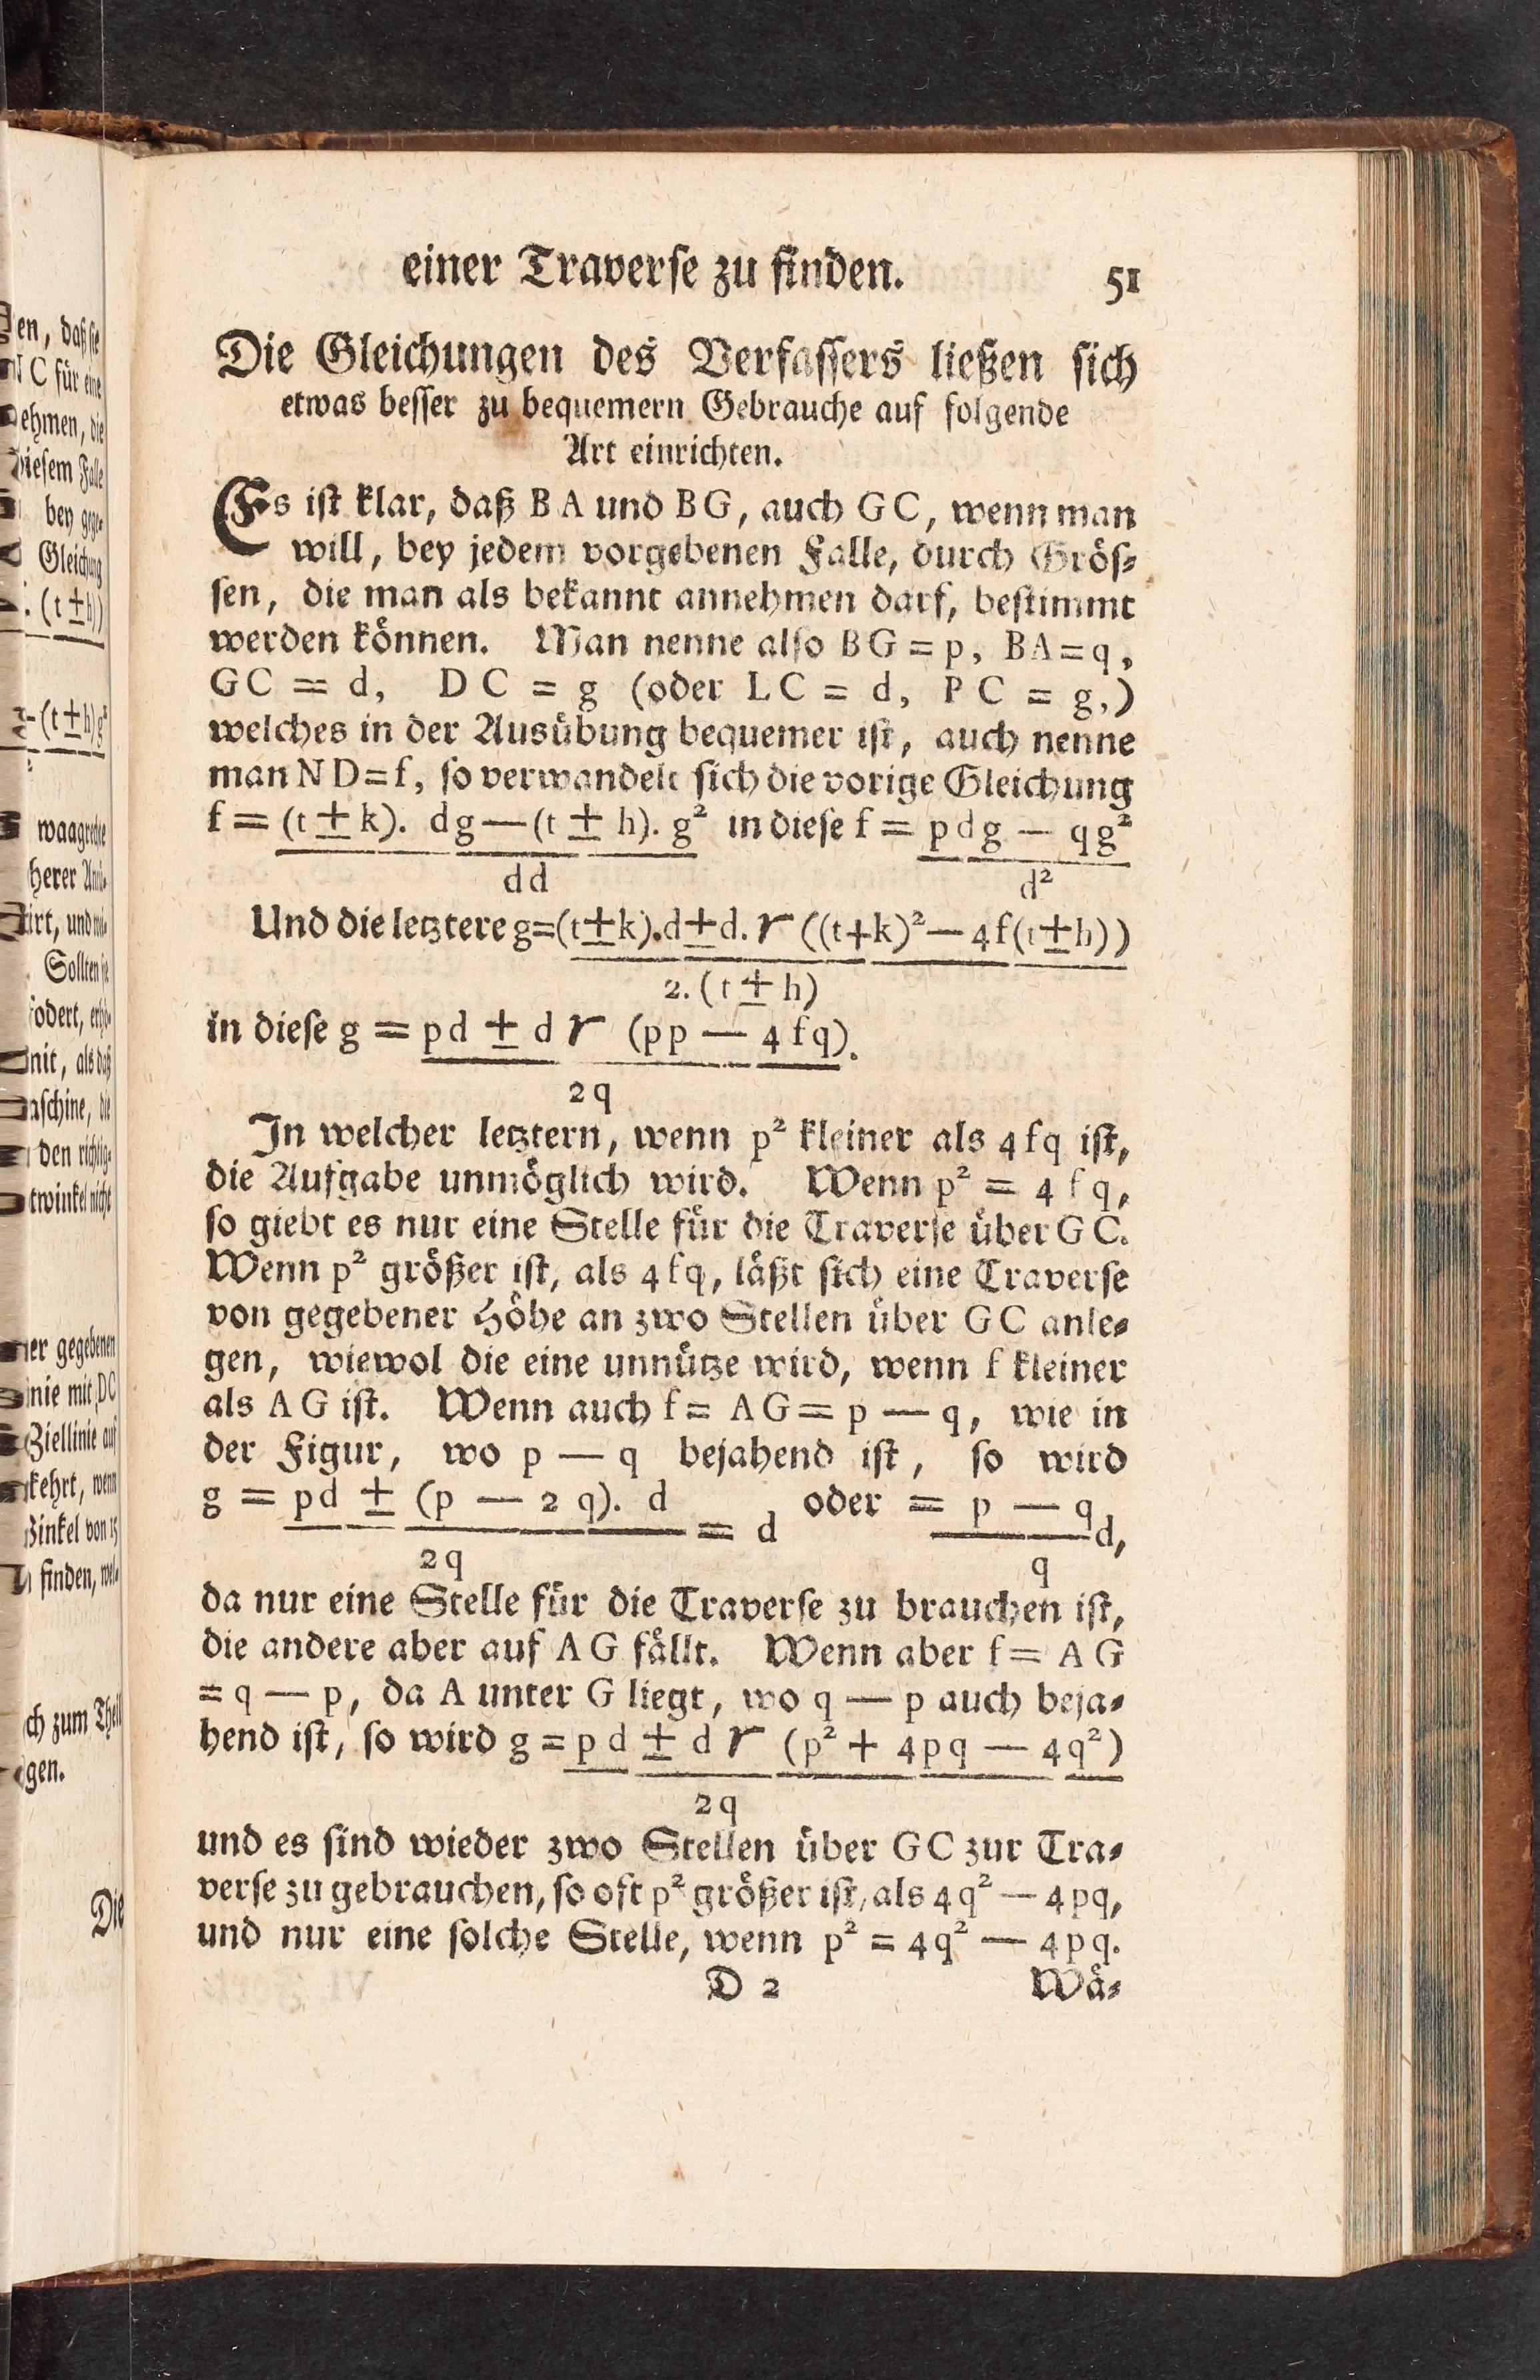 einer Traverse zu finden. 51
Die Gleichungen des Verfassers ließen sich
etwas besser zu bequemern Gebrauche auf folgende
Art einrichten.
Es ist klar, daß B A und B G, auch G C, wenn man
will, bey jedem vorgebenen Falle, durch Grös-
sen, die man als bekannt annehmen darf, bestimmt
werden können. Man nenne also B G = p, B A = q,
G C = d, D C = g (oder L C = d, P C = g,)
welches in der Ausübung bequemer ist, auch nenne
man N D = f, so verwandelt sich die vorige Gleichung
f = (t ± k). dg — (t ± h). g² in diese f = pdg — qg²
dd d²
Und die letztere g = (t ± k). d ± d. r ((t + k)² — 4 f (t ± h))
2. (t ± h)
in diese g = pd ± d r (pp — 4 fq).
2 q
In welcher letztern, wenn p² kleiner als 4 fq ist,
die Aufgabe unmöglich wird. Wenn p² = 4 f q,
so giebt es nur eine Stelle für die Traverse über G C.
Wenn p² größer ist, als 4 fq, läßt sich eine Traverse
von gegebener Höhe an zwo Stellen über G C anle-
gen, wiewol die eine unnütze wird, wenn f kleiner
als A G ist. Wenn auch f = A G = p — q, wie in
der Figur, wo p — q bejahend ist, so wird
g = pd ± (p — 2 q). d = d oder = p — q d,
2 q q
da nur eine Stelle für die Traverse zu brauchen ist,
die andere aber auf A G fällt. Wenn aber f = A G
= q — p, da A unter G liegt, wo q — p auch beja-
hend ist, so wird g = p d ± d r (p² + 4pq — 4q²)
2 q
und es sind wieder zwo Stellen über G C zur Tra-
verse zu gebrauchen, so oft p² größer ist, als 4 q² — 4 pq,
und nur eine solche Stelle, wenn p² = 4q² — 4 p q.
D 2 Wä-